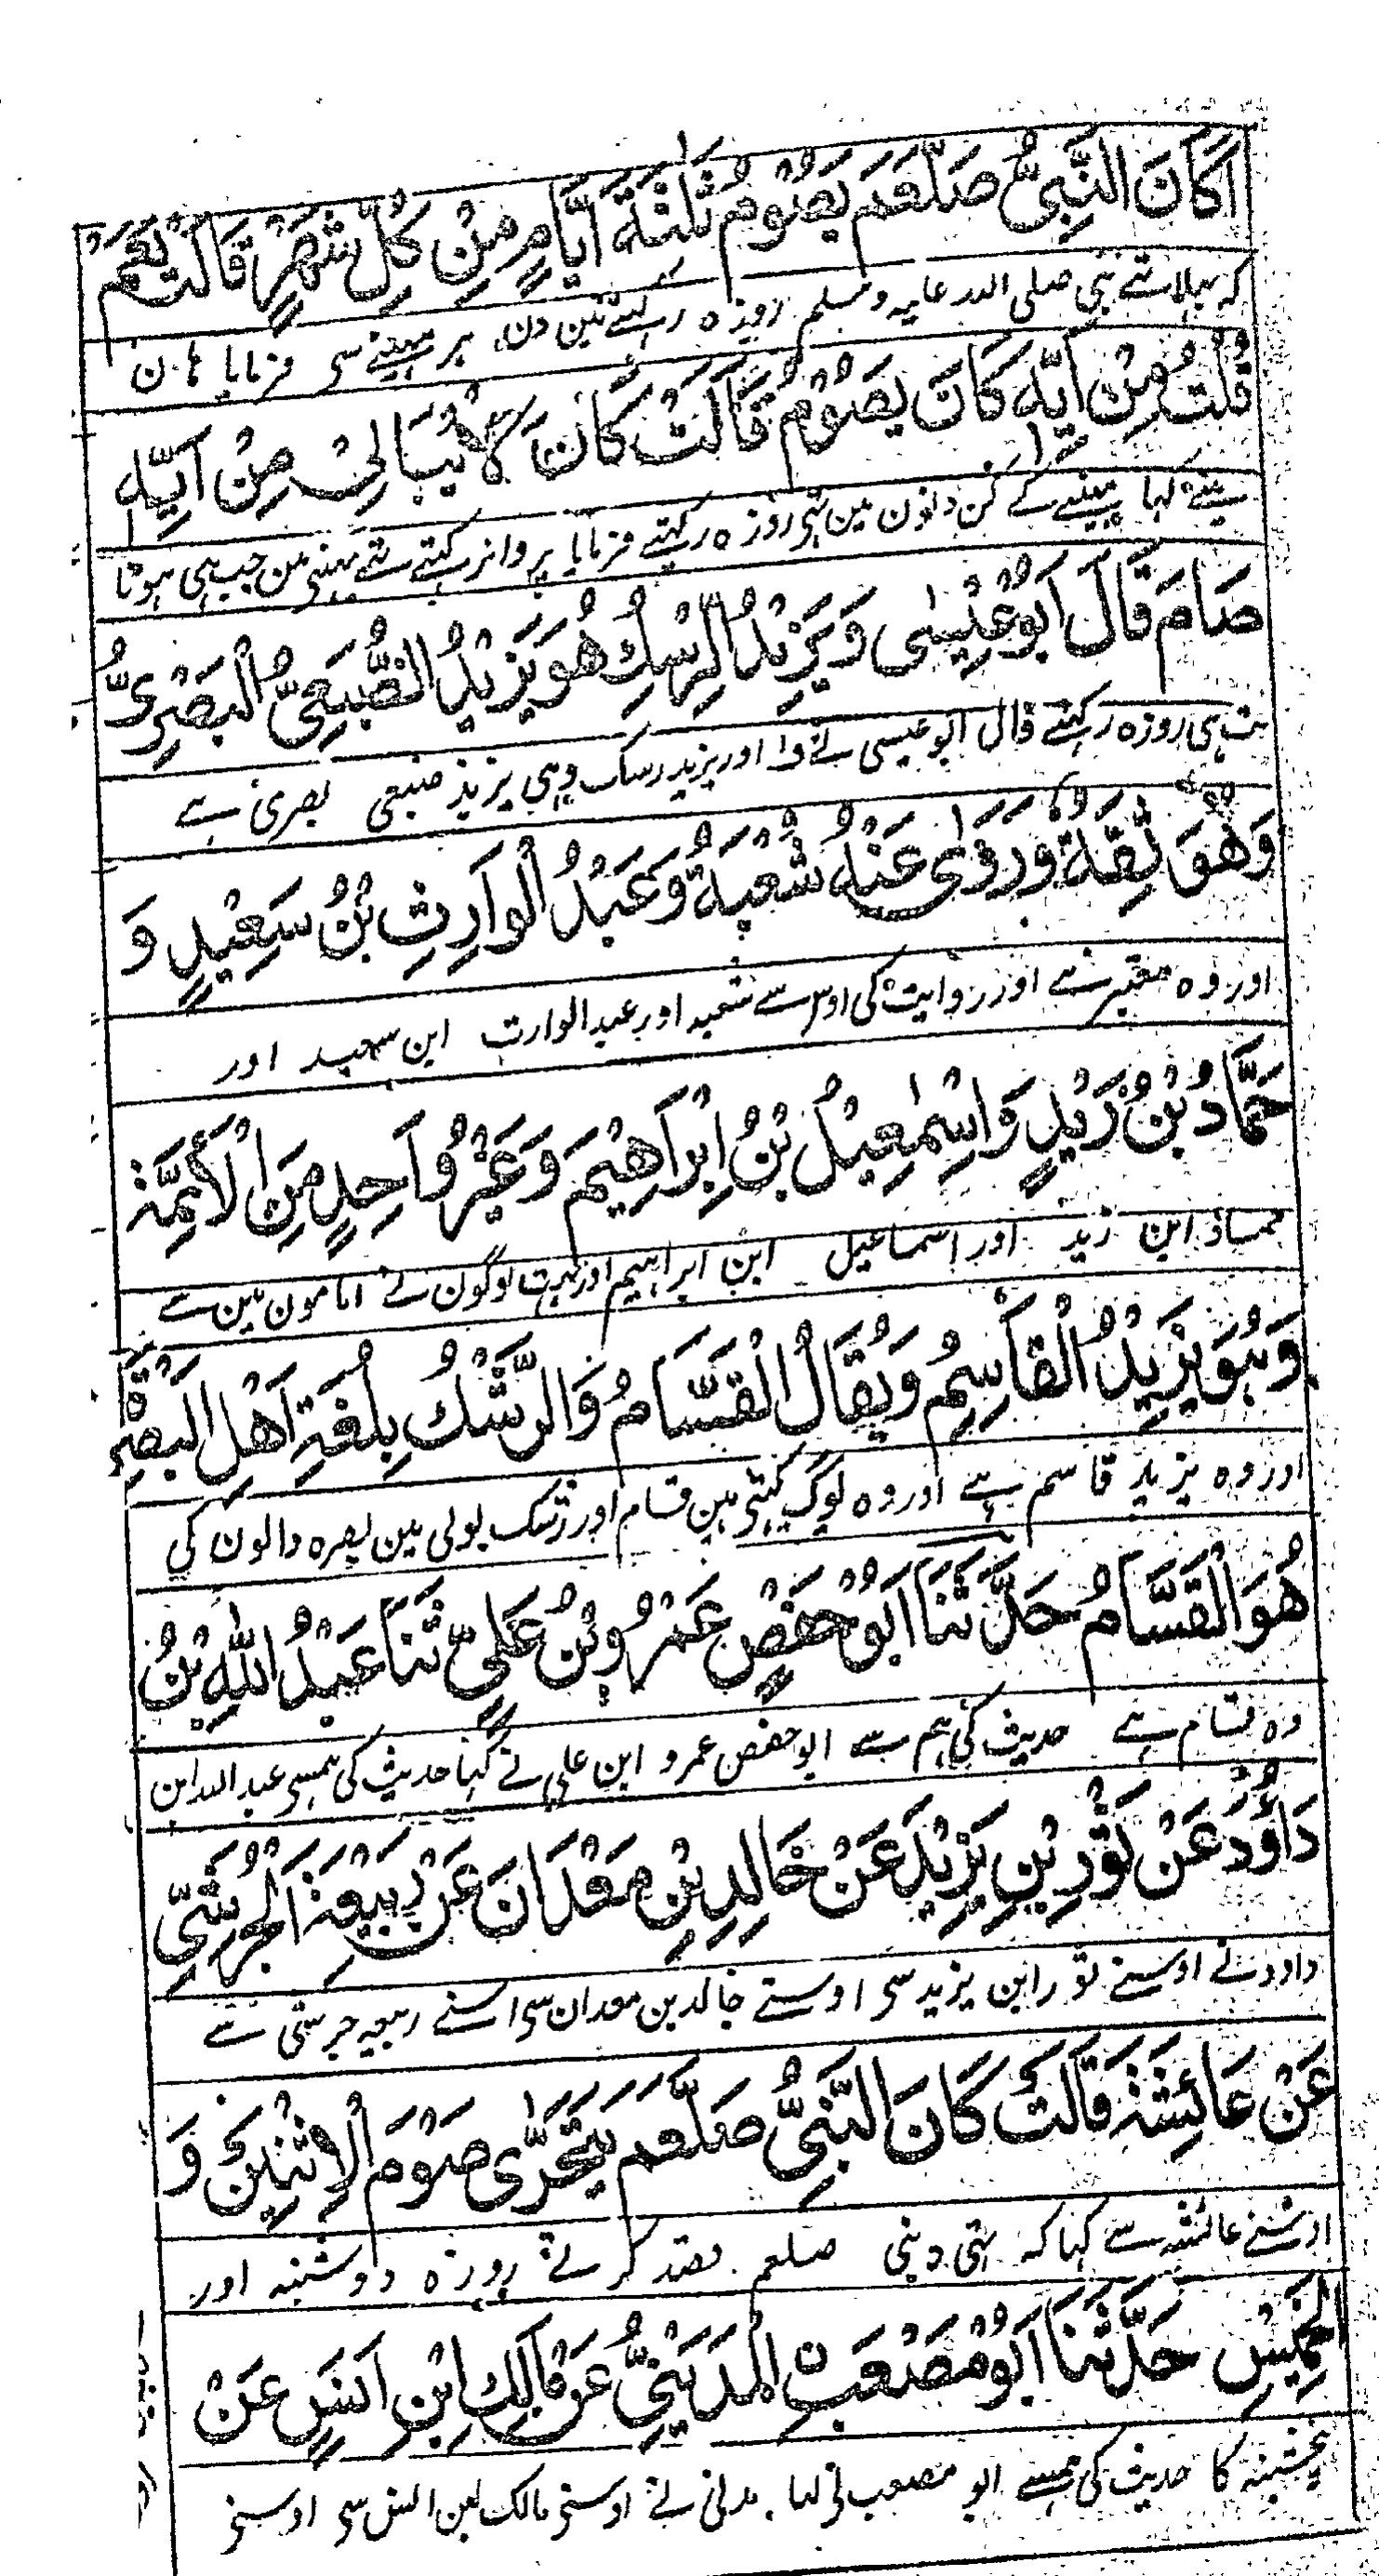 اَكَانَ النَّبِيُّ صَلَّعَمَ يَصُوْمُ ثَلٰثَةَ اَيَّامٍ مِنْ كُلِّ شَهْرٍ قَالَتْ نَعَمْ
کہ بہلا تہے نبی صلی اللہ علیہ وسلم روزہ رکہتے تین دن ہر مہینے سی فرمایا ہان
قُلْتُ مِنْ اَيِّهٖ كَانَ يَصُوْمُ قَالَتْ كَانَ لَا يُبَالِيْ مِنْ اَيِّهٖ
مینے کہا مہینے کے کن دنون مین تہی روزہ رکہتے فرمایا پروا نہ رکہتے تہے مہینی من جب ہی ہوتا
صَامَ قَالَ اَبُوْعِيْسٰى وَيَزِيْدُ الرِّشْكُ هُوَ يَزِيْدُ الضُّبَعِيُّ الْبَصَرِيُّ
ہی روزہ رکہتے قال ابو عیسی نے اور یزید رسک وہی یزید ضبعی بصری ہے
وَهُوَ ثِقَةٌ وَرَوٰى عَنْهُ شُعْبَةُ وَعَبْدُ الْوَارِثِ بْنُ سَعِيْدٍ وَ
اور وہ معتبر ہے اور روایت کی اوس سے شعبہ اور عبد الوارث ابن سعید اور
حَمَّادُ بْنُ زَيْدٍ وَاِسْمٰعِيْلُ بْنُ اِبْرَاهِيْمَ وَغَيْرُ وَاحِدٍ مِنَ الْاَئِمَّةِ
حماد ابن زید اور اسماعیل ابن ابراہیم اور بہت لوگون نے امامون مین سے
وَهُوَ يَزِيْدُ الْقَاسِمُ وَيُقَالُ الْقَسَّامُ وَالرِّشْكُ بِلُغَةِ اَهْلِ الْبَصْرَةِ
اور وہ یزید قاسم ہے اور وہ لوگ کہتی ہین قسام اور رشک بولی مین بصرہ والون کی
هُوَ الْقَسَّامُ حَدَّثَنَا اَبُوْ حَفْصٍ عَمْرُو بْنُ عَلِيٍّ ثَنَا عَبْدُ اللّٰهِ بْنُ
وہ قسام ہے حدیث کی ہم سے ابو حفص عمرو ابن علی نے کہا حدیث کی ہمسی عبد اللہ ابن
دَاوُدَ عَنْ ثَوْرِ بْنِ يَزِيْدَ عَنْ خَالِدِ بْنِ مَعْدَانَ عَنْ رَبِيْعَةَ الْجُرَشِيِّ
داود نے اوسنے ثور ابن یزید سی اوسنے خالد بن معدان سی اسنے ربیعہ جرشی سے
عَنْ عَائِشَةَ قَالَتْ كَانَ النَّبِيُّ صَلَّعَمَ يَتَحَرّٰى صَوْمَ الْاِثْنَيْنِ وَ
اوسنے عائشہ سے کہا کہ تہی نبی صلعم قصد کرتے روزہ دوشنبہ اور
الْخَمِيْسِ حَدَّثَنَا اَبُوْ مُصْعَبٍ الْمَدِيْنِيُّ عَنْ مَالِكِ ابْنِ اَنَسٍ عَنْ
پنجشنبہ کا حدیث کی ہمسے ابو مصعب نی مدنی نے اوسنی مالک بن انس سی اوسنی